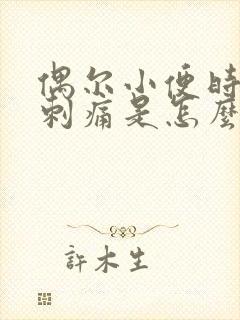 偶尔小便时
刺痛是怎麽
許木生